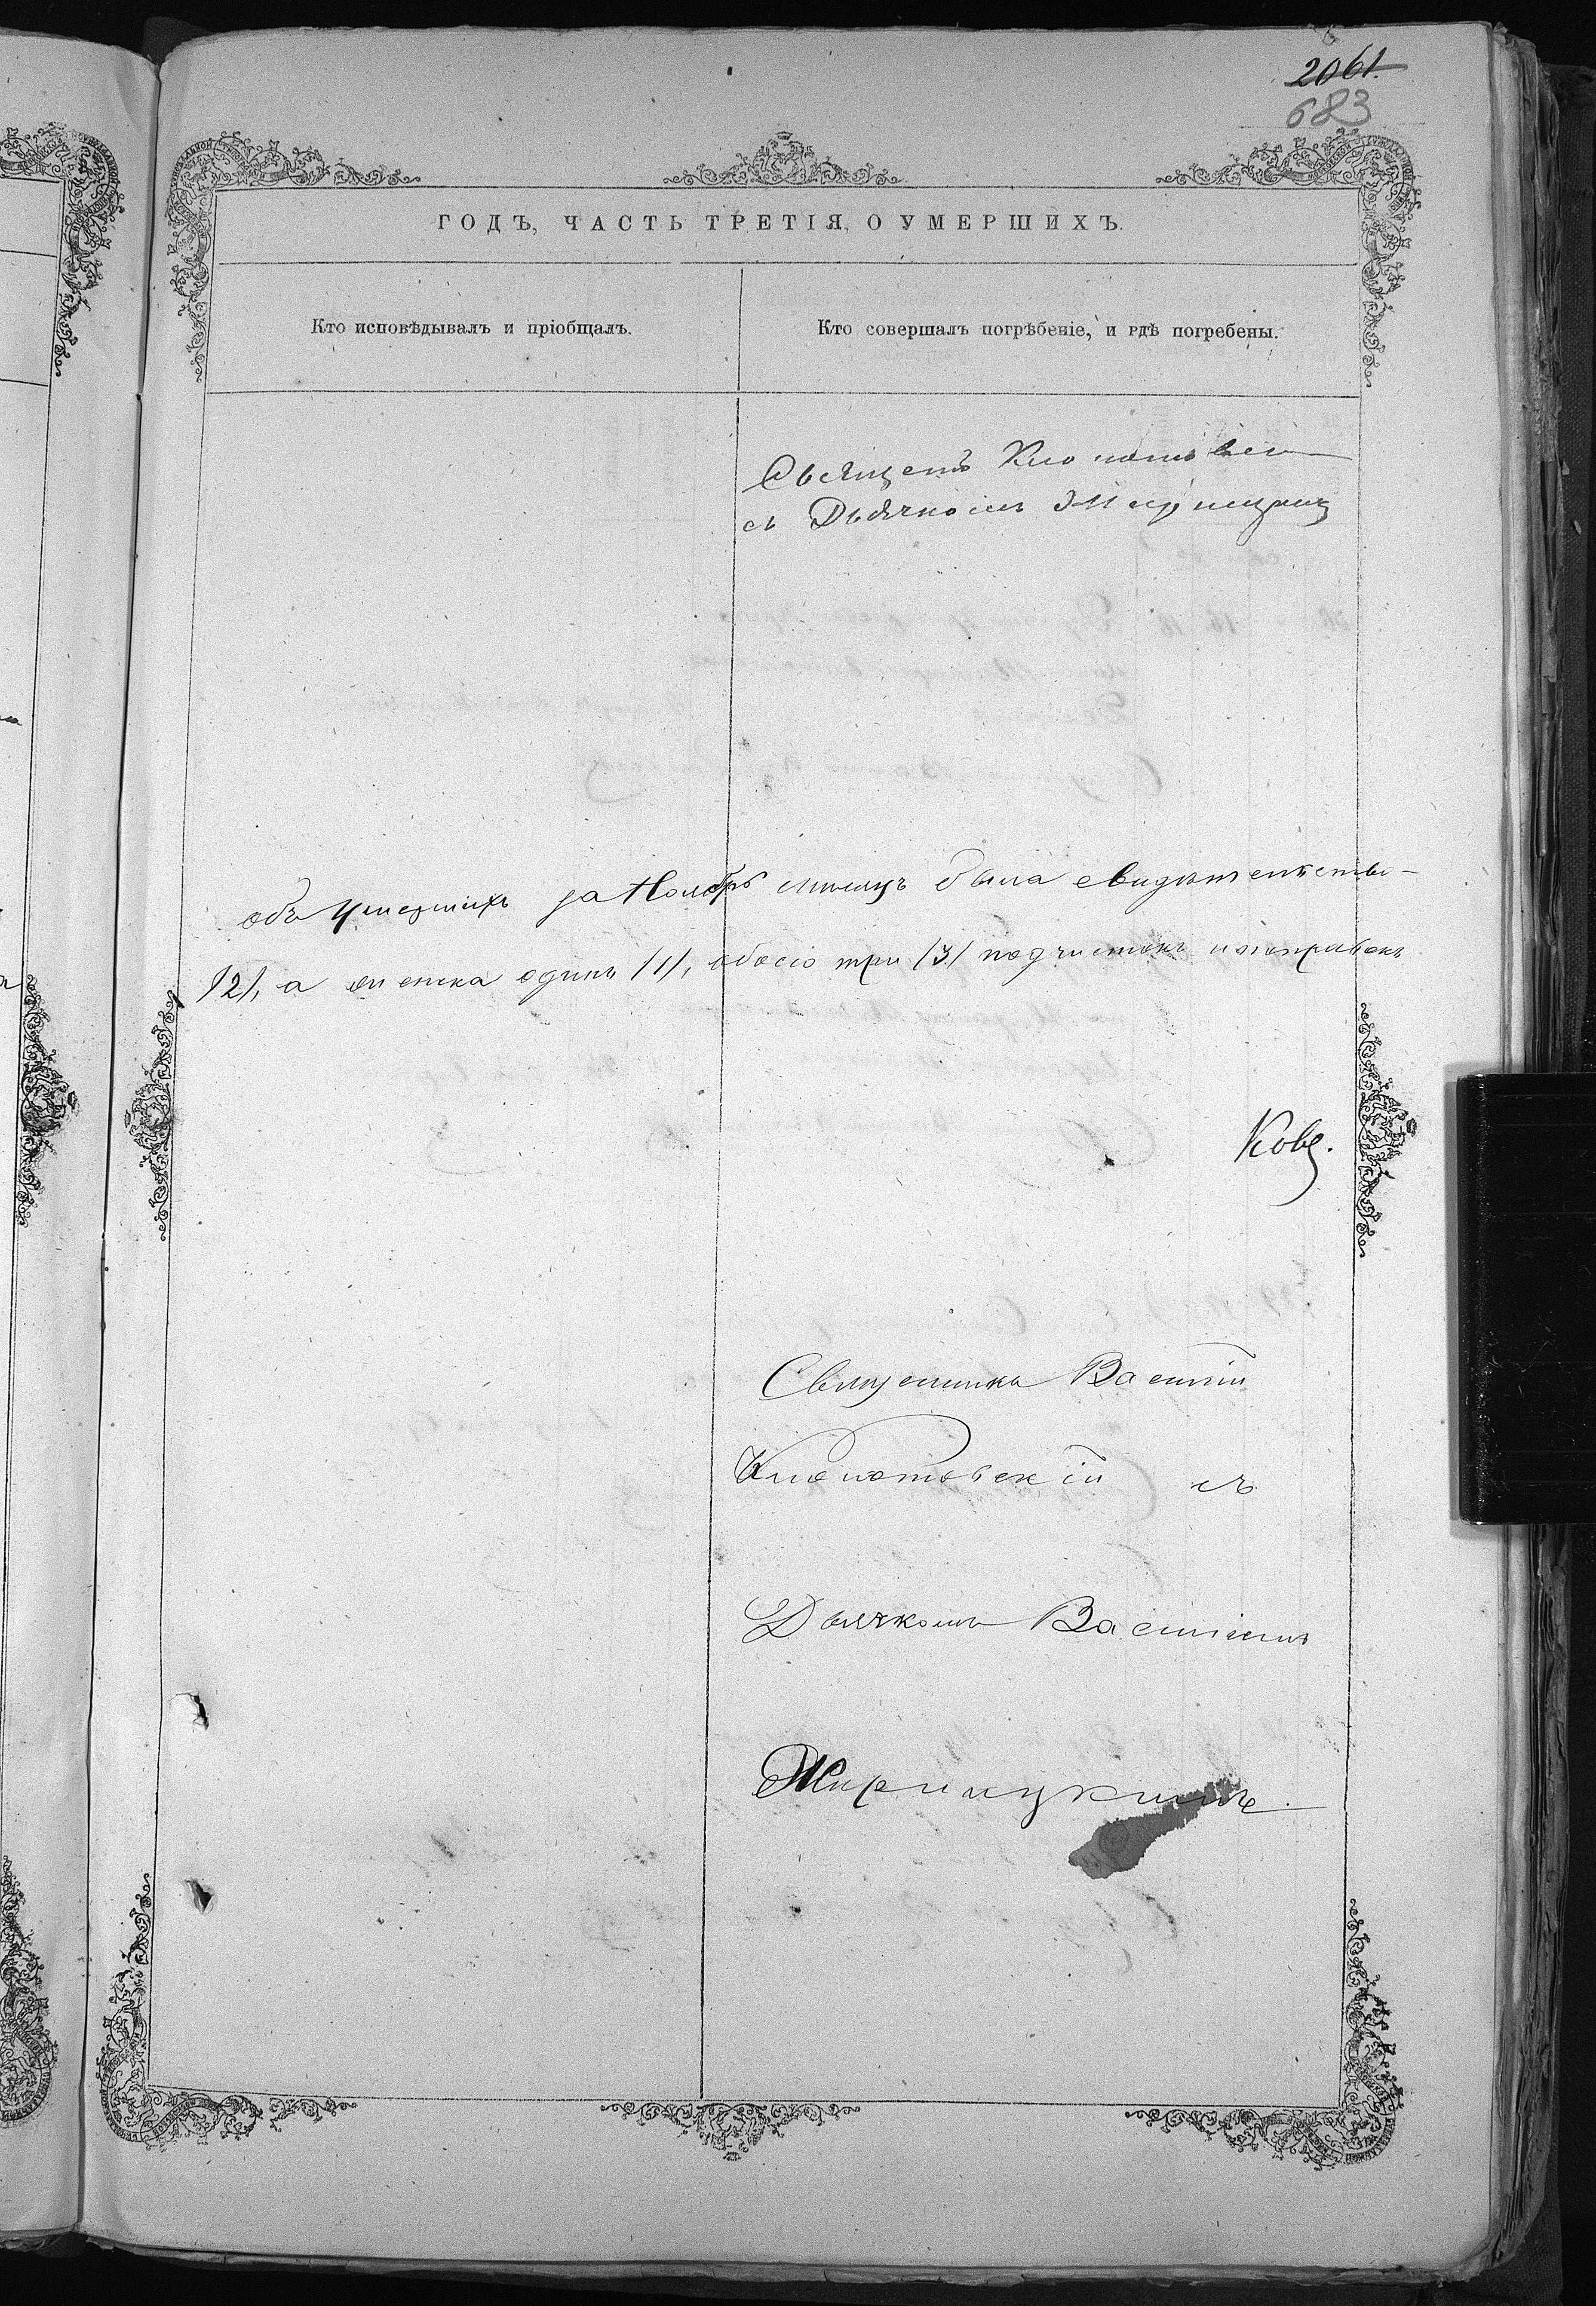 2061.
683
ГОДЪ, ЧАСТЬ ТРЕТІЯ, О УМЕРШИХЪ.
Кто исповѣдывалъ и пріобщалъ.
Кто совершалъ погрѣбеніе, и гдѣ погребены.
Священ
съ Дьячкомъ
объ умершихъ за Ноябрь мѣсяцъ была свидѣтельство-
/2/, а женска одинъ /1/, обоего три /3/ подчистокъ и поправокъ
Священникъ Василій
Клопотовскій съ
Дьячкомъ Василіемъ